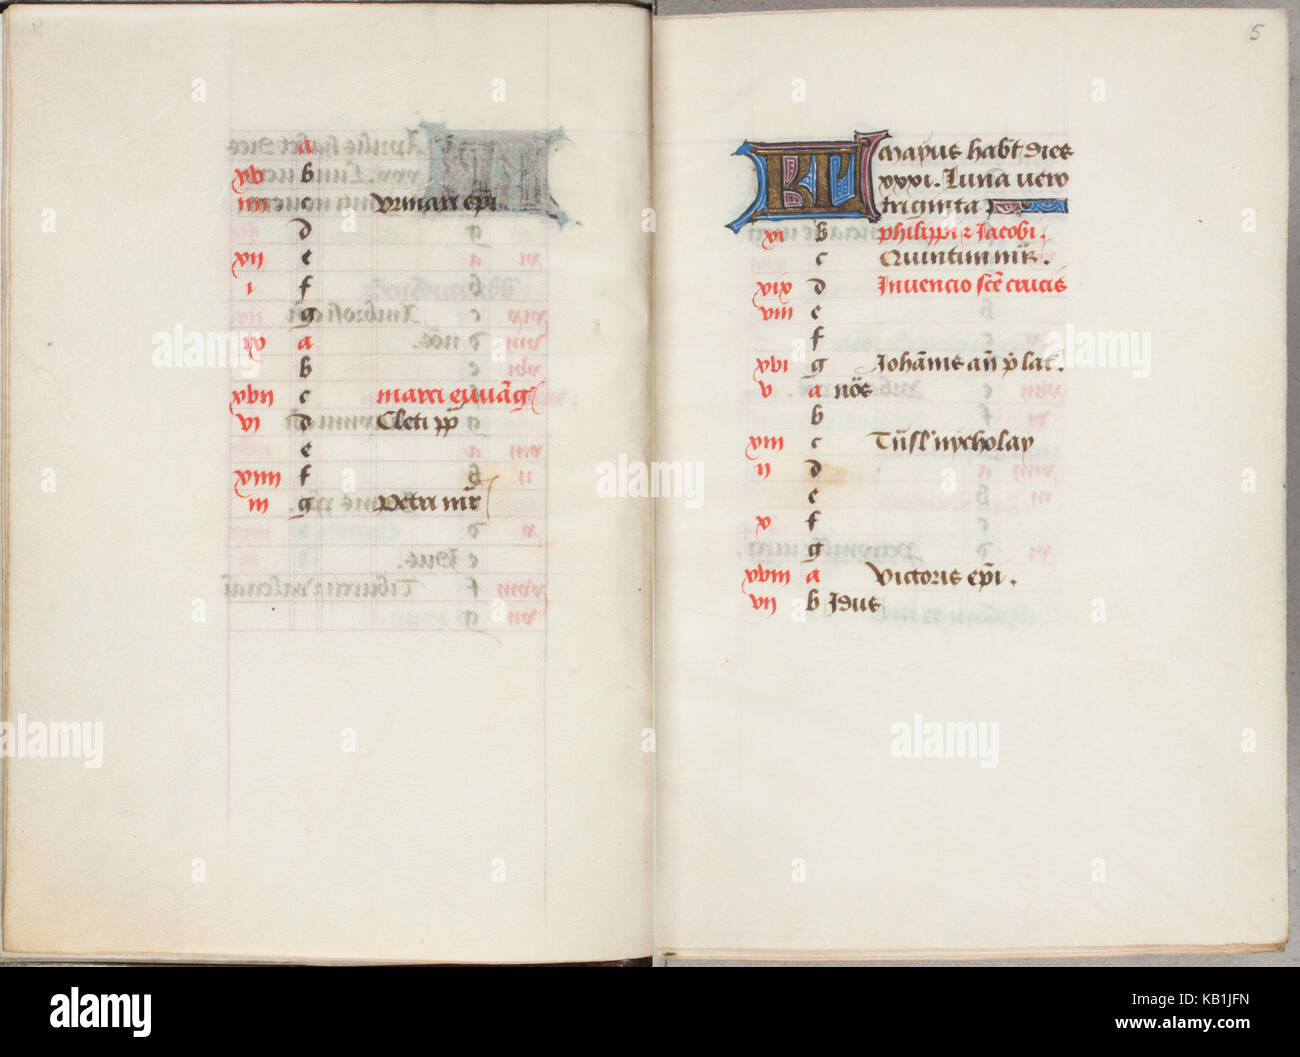 a
xv b
iiii c Vrmari epi
d
xii e
i f
g
ix a
b
xvii c marci ewāg
vi d Cleti pp̄
e
xiiii f
iii g Petri mr̄
5
KL Mayus hab̄t dies
xxxi. Luna vero
triginta
xi b philippi ⁊ Jacobi.
c Quintini mr̄.
xix d Invencio sc̄e crucis
viii e
f
xvi g Joh̄anis an̄ p̄ lat̄.
v a nōs
b
xiii c Trāsl' nycholay
ii d
e
x f
g
xviii a Victoris ep̄i.
vii b Jdus
alamy
Image ID: KB1JFN
www.alamy.com